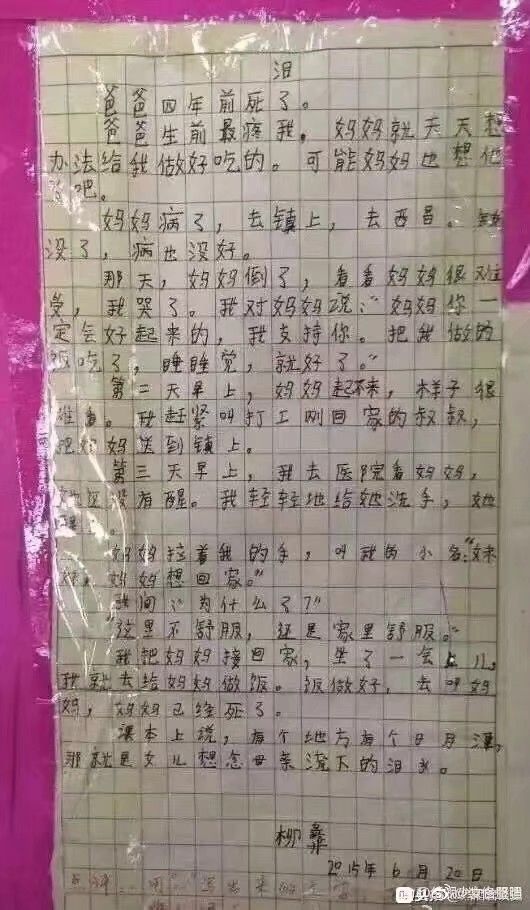 泪
爸爸四年前死了。
爸爸生前最疼我,妈妈就天天想
办法给我做好吃的。可能妈妈也想他
了吧。
妈妈病了,去镇上,去西昌。钱
没了,病也没好。
那天,妈妈倒了,看看妈妈很难
受,我哭了。我对妈妈说:“妈妈你一
定会好起来的,我支持你。把我做的
饭吃了,睡睡觉,就好了。”
第二天早上,妈妈起不来,样子很
难看。我赶紧叫打工刚回家的叔叔,
把妈妈送到镇上。
第三天早上,我去医院看妈妈,
她还没有醒。我轻轻地给她洗手,她
醒了。
妈妈拉着我的手,叫我的小名:“妹
妹,妈妈想回家。”
我问:“为什么了?”
“这里不舒服,还是家里舒服。”
我把妈妈接回家,坐了一会儿,
我就去给妈妈做饭。饭做好,去叫妈
妈,妈妈已经死了。
课本上说,有个地方有个日月潭,
那就是女儿想念母亲流下的泪水。
柳彝
2015年6月20日